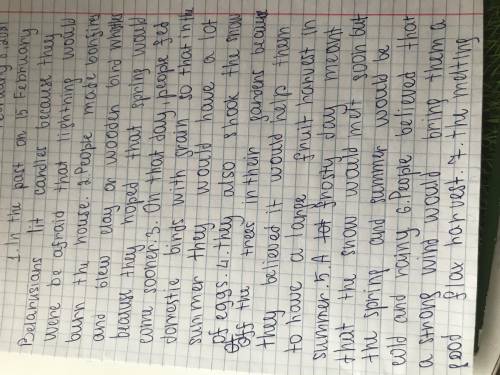 1. In the past on 15 February
Belarusians lit candles because they
were be afraid that lightning would
burn the house. 2. People made bonfire
and blew clay or wooden bird whistles
because they hoped that spring would
come sooner. 3. On that day, people fed
domestic birds with grain so that in the
summer they would have a lot
of eggs. 4. They also shook the snow
off the trees in their gardens because
they believed it would help them
to have a large fruit harvest in
summer. 5. A frosty day meant
that the snow would melt soon but
the spring and summer would be
cold and rainy 6. People believed that
a strong wind would bring them a
good flax harvest. 7. The melting